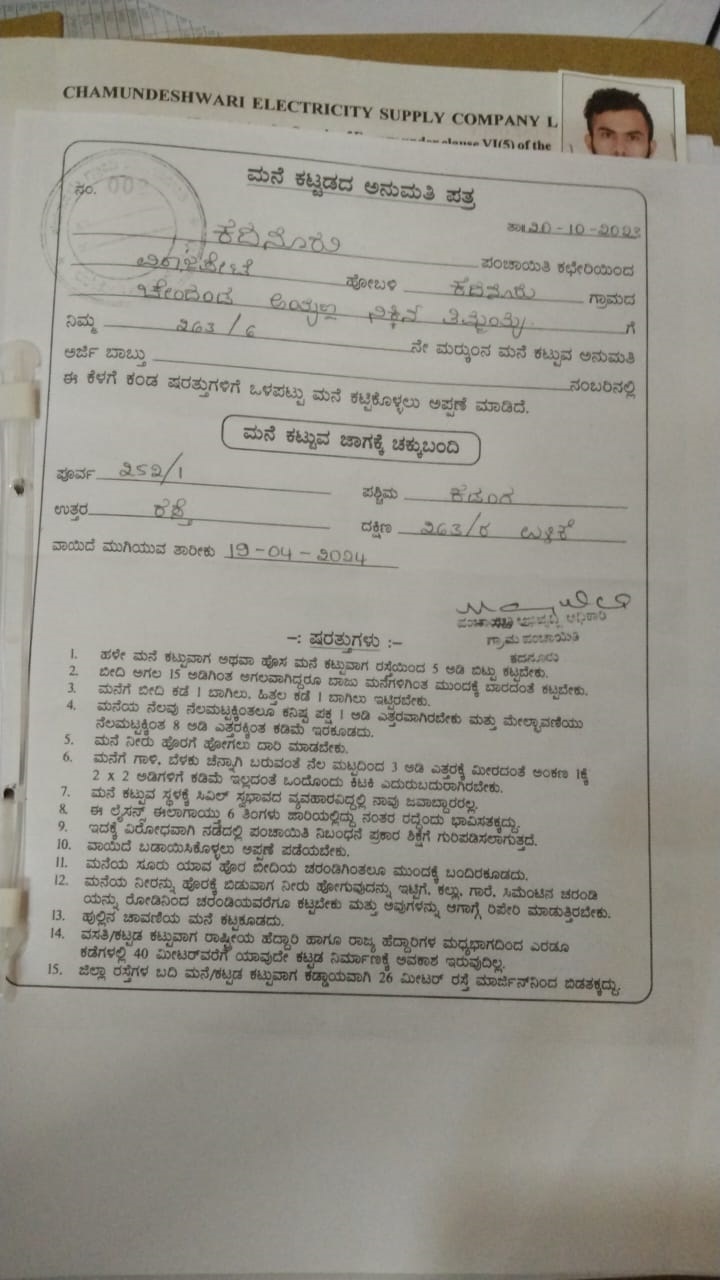 CHAMUNDESHWARI ELECTRICITY SUPPLY COMPANY L
clause VI(5) of the
ಮನೆ ಕಟ್ಟಡದ ಅನುಮತಿ ಪತ್ರ
ನಂ. 002
ತಾ॥ 20-10-2023
ಕದಿನೂರು ಪಂಚಾಯಿತಿ ಕಛೇರಿಯಿಂದ
ವಿರಾಜಪೇಟೆ ಹೋಬಳಿ ಕದಿನೂರು ಗ್ರಾಮದ
ಗೆ
ನಿಮ್ಮ 263/6 ನೇ ಮರ್‍ಕುಂನ ಮನೆ ಕಟ್ಟುವ ಅನುಮತಿ
ಅರ್ಜಿ ಬಾಬ್ತು ನಂಬರಿನಲ್ಲಿ
ಈ ಕೆಳಗೆ ಕಂಡ ಷರತ್ತುಗಳಿಗೆ ಒಳಪಟ್ಟು ಮನೆ ಕಟ್ಟಿಕೊಳ್ಳಲು ಅಪ್ಪಣೆ ಮಾಡಿದೆ.
ಮನೆ ಕಟ್ಟುವ ಜಾಗಕ್ಕೆ ಚಕ್ಕುಬಂದಿ
ಪೂರ್ವ 252/1 ಪಶ್ಚಿಮ ಕಡಂಗ
ಉತ್ತರ ರಸ್ತೆ ದಕ್ಷಿಣ 263/ರ ಉಳಿಕೆ
ವಾಯಿದೆ ಮುಗಿಯುವ ತಾರೀಕು 19-04-2024
ಪಂಚಾಯಿತಿ ಅಭಿವೃದ್ಧಿ ಅಧಿಕಾರಿ
ಗ್ರಾಮ ಪಂಚಾಯಿತಿ
ಕದನೂರು
-: ಷರತ್ತುಗಳು :-
1. ಹಳೇ ಮನೆ ಕಟ್ಟುವಾಗ ಅಥವಾ ಹೊಸ ಮನೆ ಕಟ್ಟುವಾಗ ರಸ್ತೆಯಿಂದ 5 ಅಡಿ ಬಿಟ್ಟು ಕಟ್ಟಬೇಕು.
2. ಬೀದಿ ಅಗಲ 15 ಅಡಿಗಿಂತ ಅಗಲವಾಗಿದ್ದರೂ ಬಾಜು ಮನೆಗಳಿಗಿಂತ ಮುಂದಕ್ಕೆ ಬಾರದಂತೆ ಕಟ್ಟಬೇಕು.
3. ಮನೆಗೆ ಬೀದಿ ಕಡೆ 1 ಬಾಗಿಲು, ಹಿತ್ತಲ ಕಡೆ 1 ಬಾಗಿಲು ಇಟ್ಟಿರಬೇಕು.
4. ಮನೆಯ ನೆಲವು ನೆಲಮಟ್ಟಕ್ಕಿಂತಲೂ ಕನಿಷ್ಠ ಪಕ್ಷ 1 ಅಡಿ ಎತ್ತರವಾಗಿರಬೇಕು ಮತ್ತು ಮೇಲ್ಛಾವಣಿಯು
ನೆಲಮಟ್ಟಕ್ಕಿಂತ 8 ಅಡಿ ಎತ್ತರಕ್ಕಿಂತ ಕಡಿಮೆ ಇರಕೂಡದು.
5. ಮನೆ ನೀರು ಹೊರಗೆ ಹೋಗಲು ದಾರಿ ಮಾಡಬೇಕು.
6. ಮನೆಗೆ ಗಾಳಿ, ಬೆಳಕು ಚೆನ್ನಾಗಿ ಬರುವಂತೆ ನೆಲ ಮಟ್ಟದಿಂದ 3 ಅಡಿ ಎತ್ತರಕ್ಕೆ ಮೀರದಂತೆ ಅಂಕಣ 1ಕ್ಕೆ
2 x 2 ಅಡಿಗಳಿಗೆ ಕಡಿಮೆ ಇಲ್ಲದಂತೆ ಒಂದೊಂದು ಕಿಟಕಿ ಎದುರುಬದುರಾಗಿರಬೇಕು.
7. ಮನೆ ಕಟ್ಟುವ ಸ್ಥಳಕ್ಕೆ ಸಿವಿಲ್ ಸ್ವಭಾವದ ವ್ಯವಹಾರವಿದ್ದಲ್ಲಿ ನಾವು ಜವಾಬ್ದಾರರಲ್ಲ.
8. ಈ ಲೈಸನ್ಸ್ ಈಲಾಗಾಯ್ತು 6 ತಿಂಗಳು ಜಾರಿಯಲ್ಲಿದ್ದು ನಂತರ ರದ್ದೆಂದು ಭಾವಿಸತಕ್ಕದ್ದು.
9. ಇದಕ್ಕೆ ವಿರೋಧವಾಗಿ ನಡೆದಲ್ಲಿ ಪಂಚಾಯಿತಿ ನಿಬಂಧನೆ ಪ್ರಕಾರ ಶಿಕ್ಷೆಗೆ ಗುರಿಪಡಿಸಲಾಗುತ್ತದೆ.
10. ವಾಯಿದೆ ಬಡಾಯಿಸಿಕೊಳ್ಳಲು ಅಪ್ಪಣೆ ಪಡೆಯಬೇಕು.
11. ಮನೆಯ ಸೂರು ಯಾವ ಹೊರ ಬೀದಿಯ ಚರಂಡಿಗಿಂತಲೂ ಮುಂದಕ್ಕೆ ಬಂದಿರಕೂಡದು.
12. ಮನೆಯ ನೀರನ್ನು ಹೊರಕ್ಕೆ ಬಿಡುವಾಗ ನೀರು ಹೋಗುವುದನ್ನು ಇಟ್ಟಿಗೆ, ಕಲ್ಲು, ಗಾರೆ, ಸಿಮೆಂಟಿನ ಚರಂಡಿ
ಯನ್ನು ರೋಡಿನಿಂದ ಚರಂಡಿಯವರೆಗೂ ಕಟ್ಟಬೇಕು ಮತ್ತು ಅವುಗಳನ್ನು ಆಗಾಗ್ಗೆ ರಿಪೇರಿ ಮಾಡುತ್ತಿರಬೇಕು.
13. ಹುಲ್ಲಿನ ಚಾವಣಿಯ ಮನೆ ಕಟ್ಟಕೂಡದು.
14. ವಸತಿ/ಕಟ್ಟಡ ಕಟ್ಟುವಾಗ ರಾಷ್ಟ್ರೀಯ ಹೆದ್ದಾರಿ ಹಾಗೂ ರಾಜ್ಯ ಹೆದ್ದಾರಿಗಳ ಮಧ್ಯಭಾಗದಿಂದ ಎರಡೂ
ಕಡೆಗಳಲ್ಲಿ 40 ಮೀಟರ್‌ವರೆಗೆ ಯಾವುದೇ ಕಟ್ಟಡ ನಿರ್ಮಾಣಕ್ಕೆ ಅವಕಾಶ ಇರುವುದಿಲ್ಲ.
15. ಜಿಲ್ಲಾ ರಸ್ತೆಗಳ ಬದಿ ಮನೆ/ಕಟ್ಟಡ ಕಟ್ಟುವಾಗ ಕಡ್ಡಾಯವಾಗಿ 26 ಮೀಟರ್ ರಸ್ತೆ ಮಾರ್ಜಿನ್‌ನಿಂದ ಬಿಡತಕ್ಕದ್ದು.